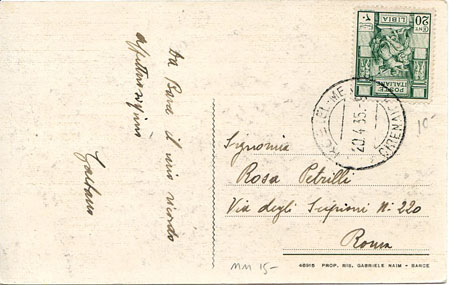 Da Barce il mio ricordo
affettuosissimo
Gaetano
20 CENT
LIBIA
POSTE
ITALIANE
20.4.35
CIRENA
Signorina
Rosa Petrilli
Via degli Scipioni N. 220
Roma
15-
MM 15-
46916 PROP. RIS. GABRIELE NAIM - BARCE